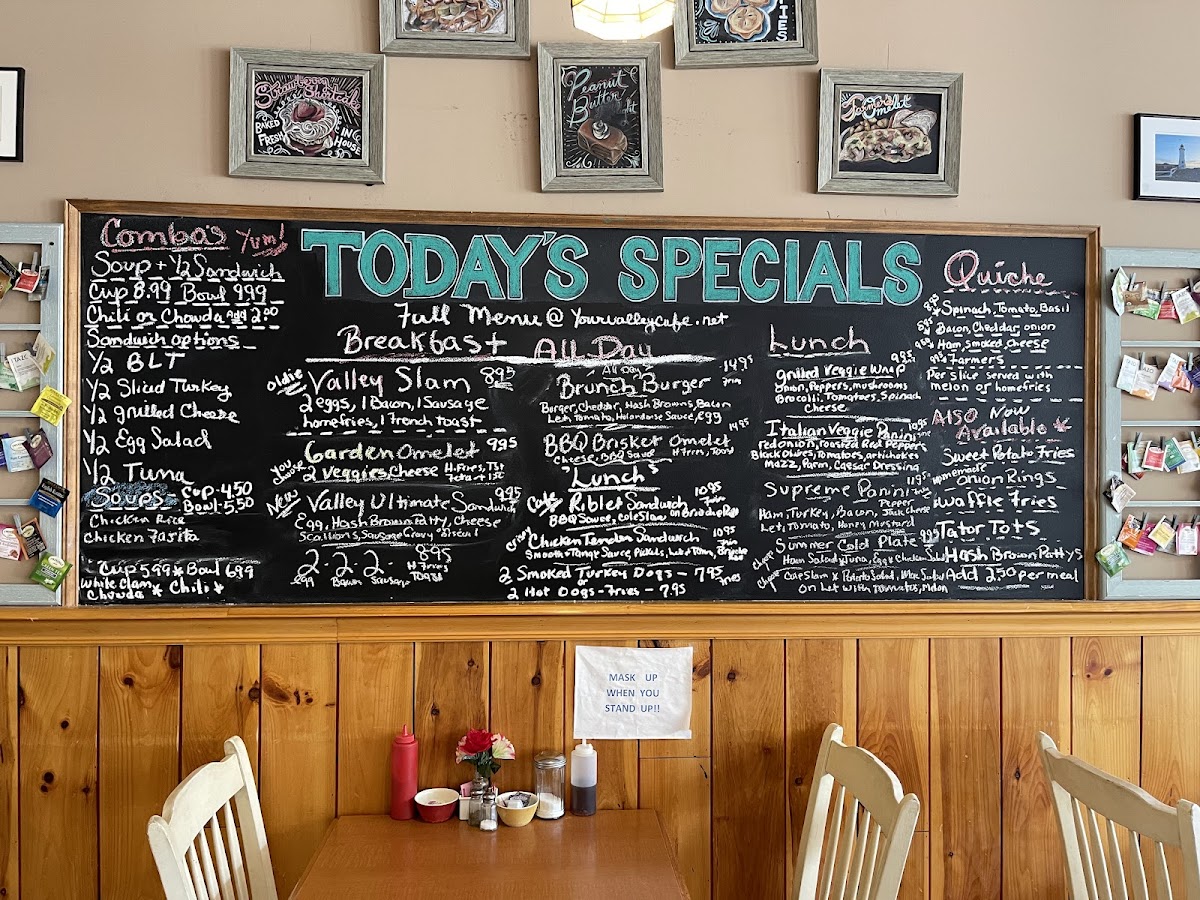 Strawberry
Shortcake
BAKED
FRESH
IN
HOUSE
Peanut
Butter
Farmer's
Omelet
Combo's Yum!
Soup + 1/2 Sandwich
Cup 8.99 Bowl 9.99
Chili or Chowda Add 2.00
Sandwich options
1/2 BLT
1/2 Sliced Turkey
1/2 grilled Cheese
1/2 Egg Salad
1/2 Tuna
Soups Cup-4.50
Bowl-5.50
Chicken Rice
Chicken Fajita
Cup 5.99 * Bowl 6.99
White Clam
Chowda * Chili *
TODAY'S SPECIALS
Full Menu @ Yourvalleycafe.net
Breakfast All Day
Oldie Valley Slam 8.95
2 eggs, 1 Bacon, 1 Sausage
homefries, 1 french toast
Garden Omelet 9.95
You Choose 2 Veggies Cheese H.Fries, Tst
New Valley Ultimate Sandwich 9.95
Egg, Hash Brown Patty, Cheese
Scallions, Sausage Gravy Biscuit
2 - 2 - 2 - 8.95
egg Bacon Sausage H Fries
Toast
All Day
Brunch Burger 14.95
Burger, Cheddar, Hash Browns, Bacon
Let, Tomato, Holandaise Sauce, Egg
BBQ Brisket Omelet 14.95
Cheese, BBQ Sauce H Fries, Toast
"Lunch"
Riblet Sandwich 10.95
BBQ Sauce, Coleslaw on Brioche Roll
Chicken Tender Sandwich 10.95
Smooth + Tangy Sauce, Pickles, Let + Tom, Brioche Roll
2 Smoked Turkey Dogs - 7.95
or Fries
2 Hot Dogs - Fries - 7.95
Lunch
9.95
grilled Veggie Wrap
Onion, Peppers, mushrooms
Brocolli, Tomatoes, Spinach
Cheese
Italian Veggie Panini 10.95
red onion, roasted Red Peppers
Black Olives, Tomatoes, artichokes
Mazz, Parm, Caesar Dressing
Supreme Panini 11.95
Ham, Turkey, Bacon, Pepper Jack Cheese
Let, Tomato, Honey Mustard
Summer Cold Plate 9.95
Choose Ham Salad, Tuna, Egg, Chicken Salad
Choose Coleslaw * Potato Salad, Mac Salad
on Let with Tomatos, Melon
Quiche
8.95 * Spinach, Tomato, Basil
Bacon, Cheddar, onion
Ham, smoked, cheese
9.95 Farmers
Per slice served with
melon or homefries
Also Now
Available
Sweet Potato Fries
Homemade
Onion Rings
Waffle Fries
Tator Tots
Hash Brown Pattys
Add 2.50 per meal
MASK UP
WHEN YOU
STAND UP!!